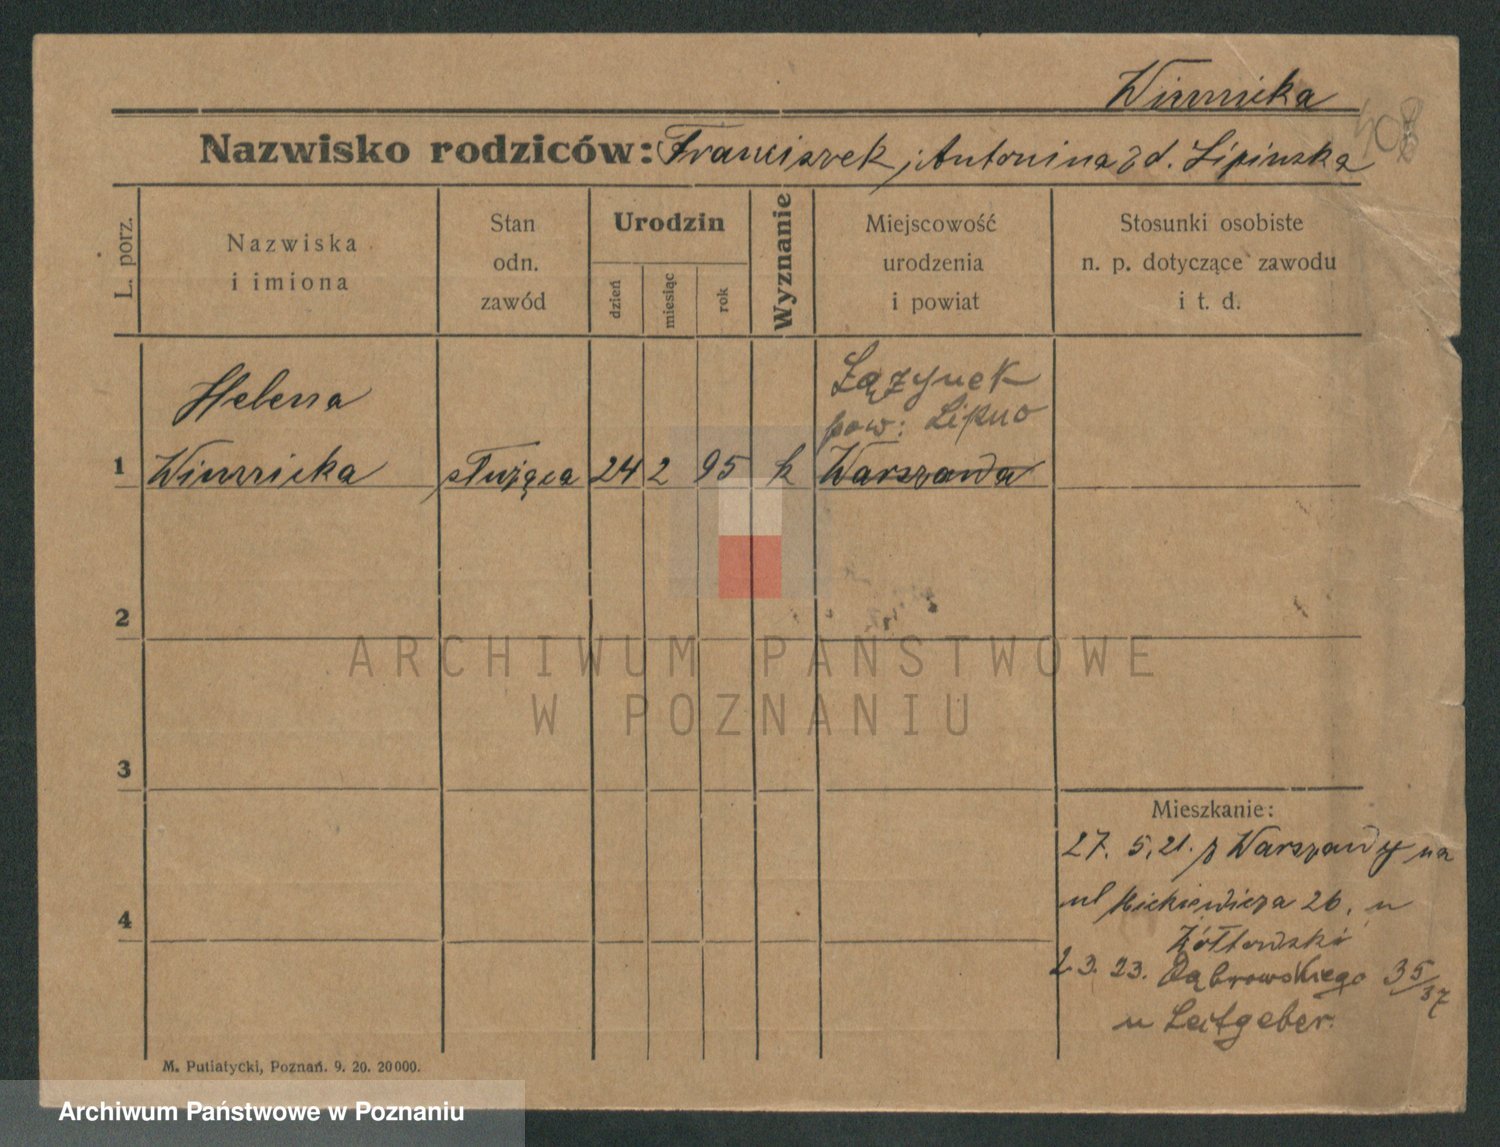 Winnicka
Nazwisko rodziców: Franciszek, Antonina z d. Lipinska
L. porz.
Nazwiska
i imiona
Stan
odn.
zawód
Urodzin
dzień
miesiąc
rok
Wyznanie
Miejscowość
urodzenia
i powiat
Stosunki osobiste
n. p. dotyczące zawodu
i t. d.
Helena
Łążynek
pow: Lipno
1 Winnicka służąca 24 2 95 k Warszawa
2
ARCHIWUM PAŃSTWOWE
W POZNANIU
3
Mieszkanie:
27. 5. 21. z Warszawy na
4
ul Mickiewicza 26. u
Żółtowski
2. 3. 23. Dąbrowskiego 35/37
u Leitgeber.
M. Putiatycki, Poznań. 9. 20. 20000.
Archiwum Państwowe w Poznaniu